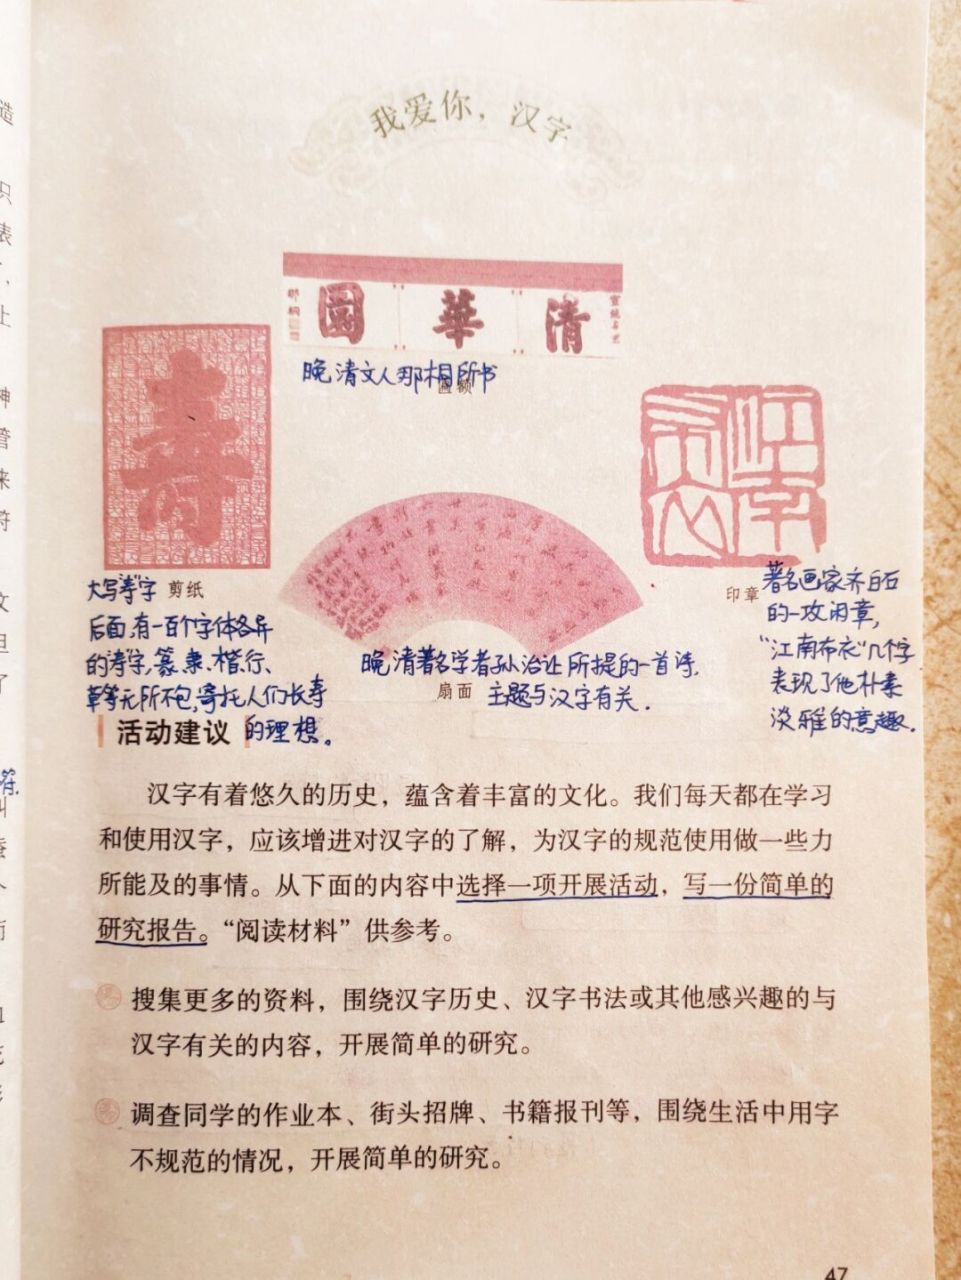 我爱你，汉字
清華園
晚清文人那桐所书
匾额
壽
大写“寿”字
剪纸
后面有一百个字体各异
的“寿”字，篆、隶、楷、行、
草等无所不包，寄托人们长寿
的理想。
晚清著名学者孙治让所提的一首诗，
扇面
主题与汉字有关．
江南布衣
印章
著名画家齐白石
的一攻闲章，
“江南布衣”几个字
表现了他朴素
淡雅的意趣．
活动建议
汉字有着悠久的历史，蕴含着丰富的文化。我们每天都在学习
和使用汉字，应该增进对汉字的了解，为汉字的规范使用做一些力
所能及的事情。从下面的内容中选择一项开展活动，写一份简单的
研究报告。“阅读材料”供参考。
搜集更多的资料，围绕汉字历史、汉字书法或其他感兴趣的与
汉字有关的内容，开展简单的研究。
调查同学的作业本、街头招牌、书籍报刊等，围绕生活中用字
不规范的情况，开展简单的研究。
47